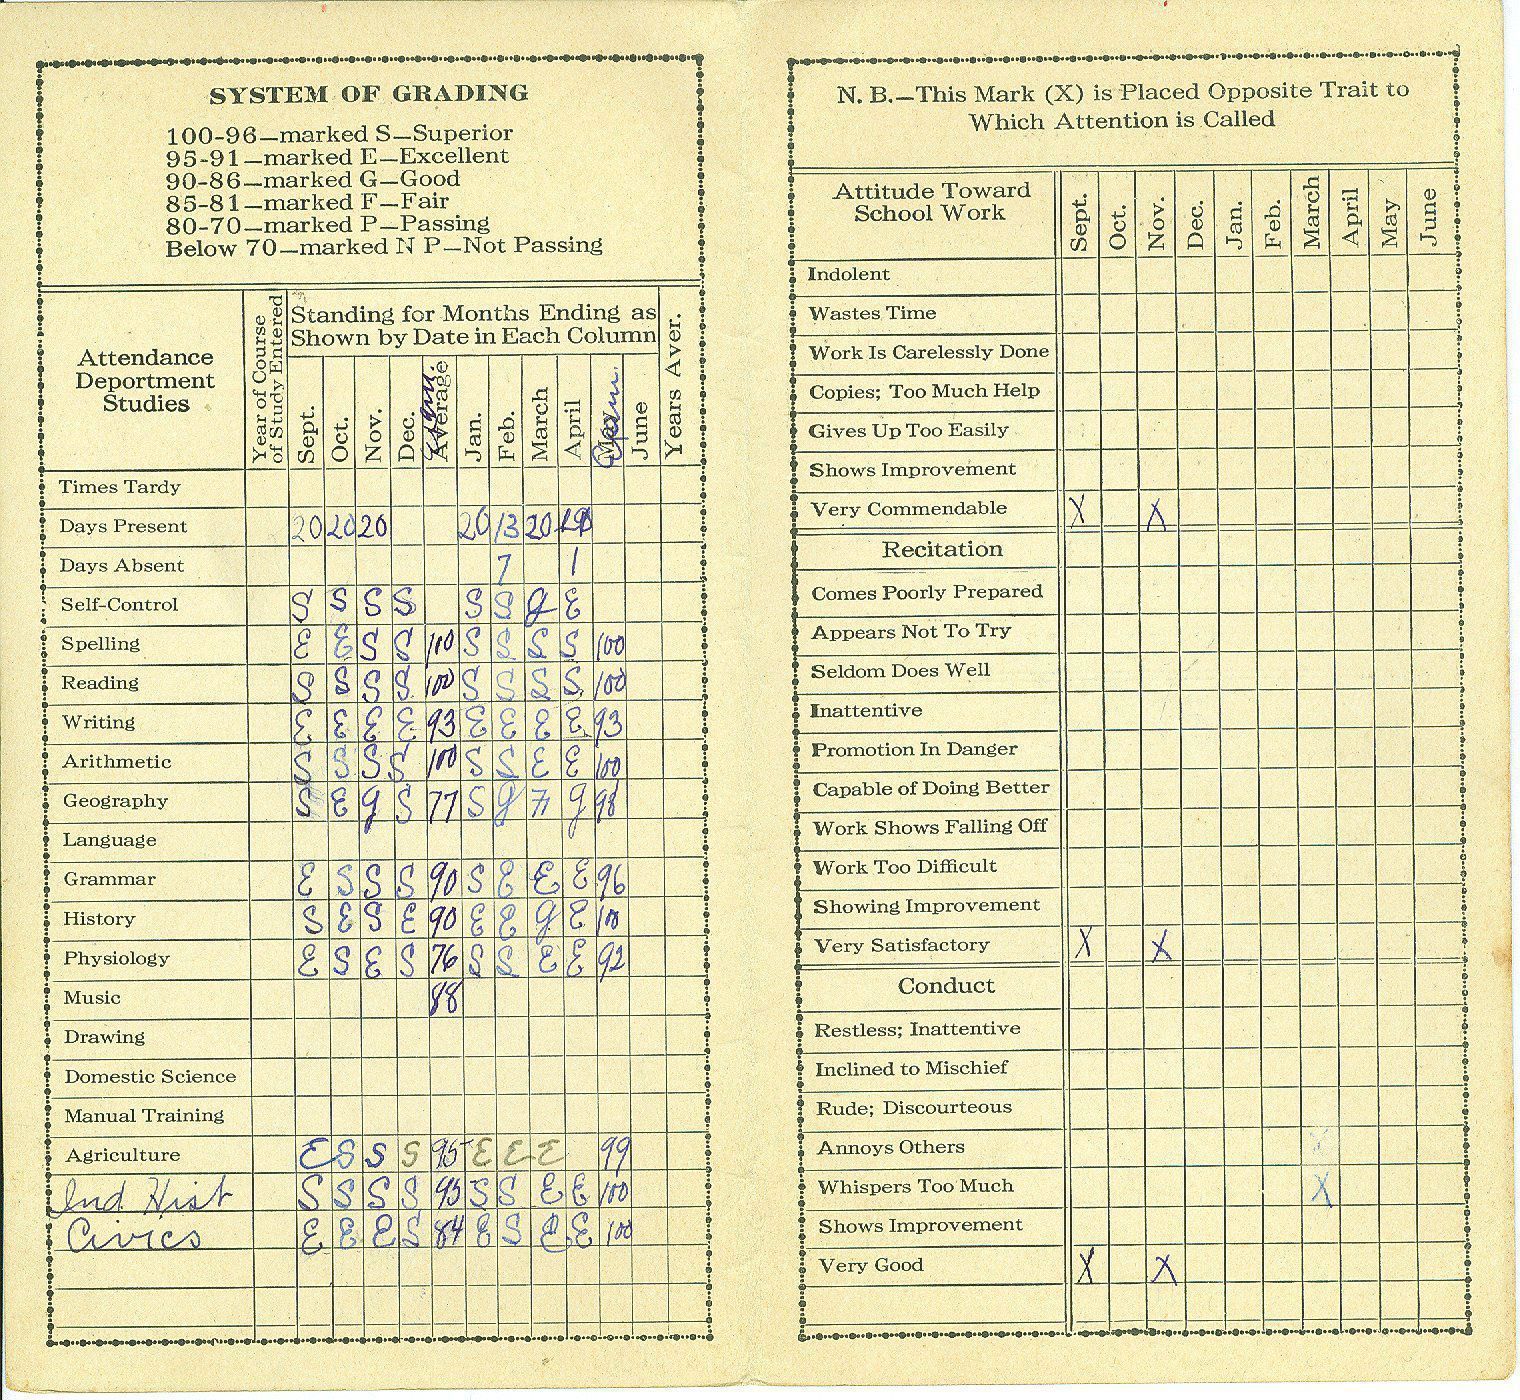 SYSTEM OF GRADING
100-96—marked S—Superior
95-91—marked E—Excellent
90-86—marked G—Good
85-81—marked F—Fair
80-70—marked P—Passing
Below 70—marked N P—Not Passing
Attendance
Department
Studies
Year of Course
of Study Entered
Standing for Months Ending as
Shown by Date in Each Column
Sept. Oct. Nov. Dec. Average Exam. Jan. Feb. March April Exam. June
Years Aver.
Times Tardy
Days Present 20 20 20 20 13 20 19
Days Absent 7 1
Self-Control S S S S S S g E
Spelling E E S S 100 S S S S 100
Reading S S S S 100 S S S S 100
Writing E E E E 93 E E E E 93
Arithmetic S S S S 100 S S E E 100
Geography S E g S 77 S g g 98
Language
Grammar E S S S 90 S E E E 96
History S E S E 90 E E g E 100
Physiology E S E S 76 S S E E 92
Music 88
Drawing
Domestic Science
Manual Training
Agriculture E S S S 95 E E E 99
Ind Hist S S S S 95 S S E E 100
Civics E E E S 84 E S E E 100
N. B.—This Mark (X) is Placed Opposite Trait to
Which Attention is Called
Attitude Toward
School Work
Sept. Oct. Nov. Dec. Jan. Feb. March April May June
Indolent
Wastes Time
Work Is Carelessly Done
Copies; Too Much Help
Gives Up Too Easily
Shows Improvement
Very Commendable X X
Recitation
Comes Poorly Prepared
Appears Not To Try
Seldom Does Well
Inattentive
Promotion In Danger
Capable of Doing Better
Work Shows Falling Off
Work Too Difficult
Showing Improvement
Very Satisfactory X X
Conduct
Restless; Inattentive
Inclined to Mischief
Rude; Discourteous
Annoys Others
Whispers Too Much X
Shows Improvement
Very Good X X